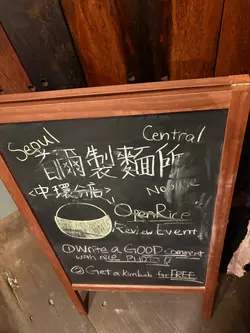 Seoul
Central
首爾製麵所
<中環分店>
Noodle
"OpenRice"
Review Event
①Write a GOOD comment
with nice PHOTO!!
②Get a Kimbab for FREE